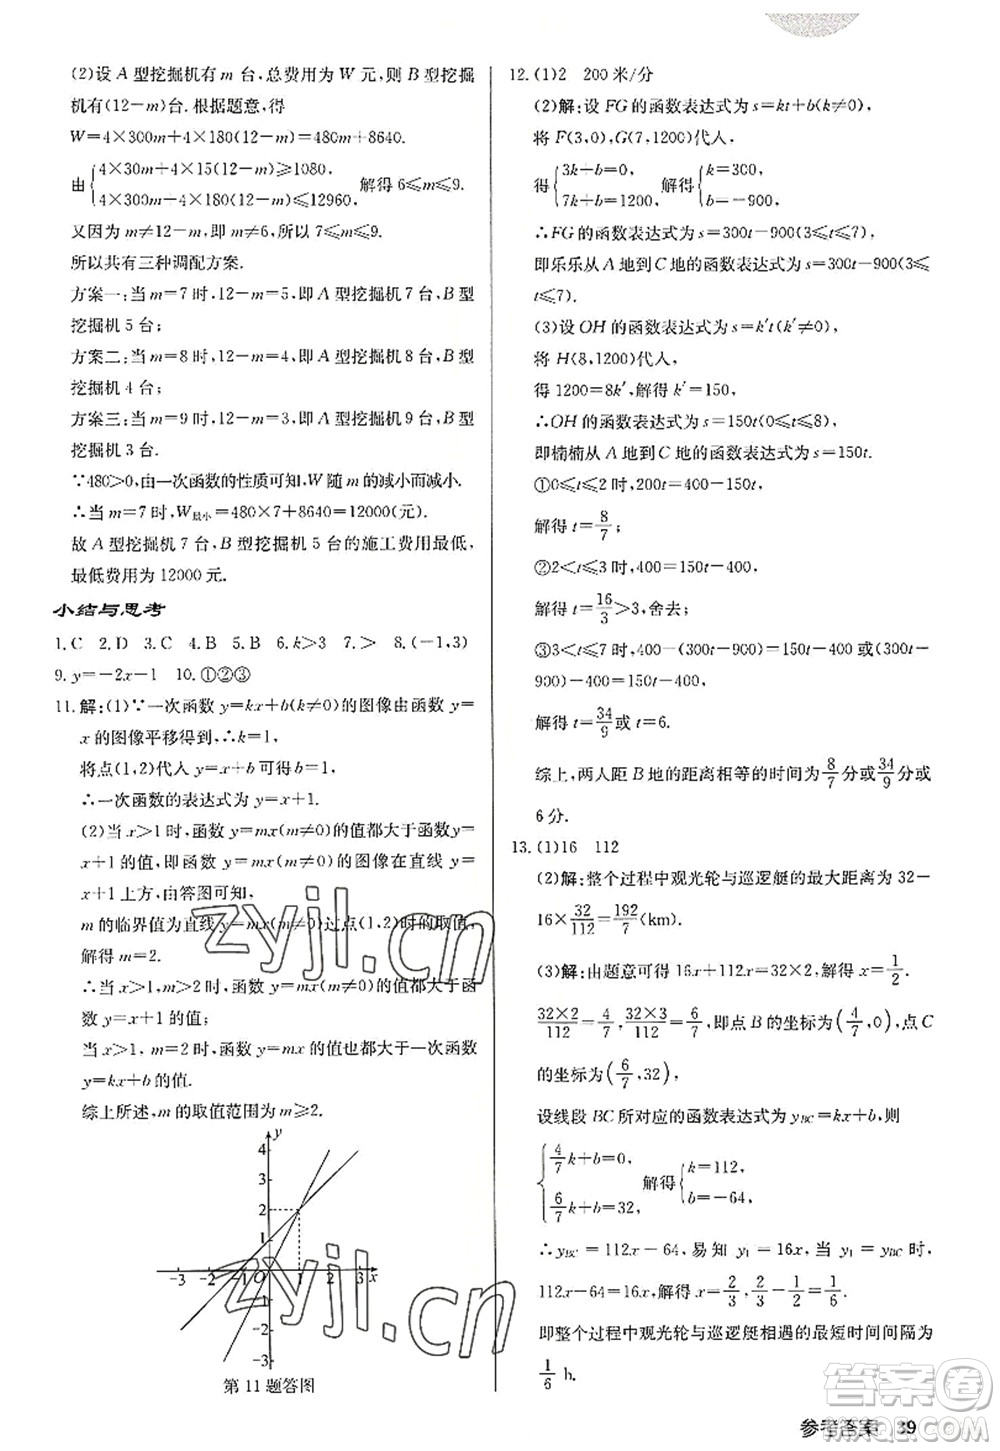 (2)设 A 型挖掘机有 m 台,总费用为 W 元,则 B 型挖掘
机有(12-m)台. 根据题意,得
W=4×300m+4×180(12-m)=480m+8640.
由{4×30m+4×15(12-m)⩾1080, 4×300m+4×180(12-m)⩽12960, 解得 6⩽m⩽9.
又因为 m≠12-m,即 m≠6,所以 7⩽m⩽9.
所以共有三种调配方案.
方案一:当 m=7 时,12-m=5,即 A 型挖掘机 7 台,B 型
挖掘机 5 台;
方案二:当 m=8 时,12-m=4,即 A 型挖掘机 8 台,B 型
挖掘机 4 台;
方案三:当 m=9 时,12-m=3,即 A 型挖掘机 9 台,B 型
挖掘机 3 台.
∵480>0,由一次函数的性质可知,W 随 m 的减小而减小.
∴当 m=7 时,W最小=480×7+8640=12000(元).
故 A 型挖掘机 7 台,B 型挖掘机 5 台的施工费用最低,
最低费用为 12000 元.
小结与思考
1.C 2.D 3.C 4.B 5.B 6.k>3 7.> 8.(-1,3)
9.y=-2x-1 10.①②③
11.解:(1)∵一次函数 y=kx+b(k≠0)的图像由函数 y=
x 的图像平移得到,∴k=1,
将点(1,2)代入 y=x+b 可得 b=1,
∴一次函数的表达式为 y=x+1.
(2)当 x>1 时,函数 y=mx(m≠0)的值都大于函数y=
x+1 的值,即函数 y=mx(m≠0)的图像在直线 y=
x+1 上方,由答图可知,
m 的临界值为直线 y=mx(m≠0)过点(1,2)时的取值,
解得 m=2.
∴当 x>1,m>2 时,函数 y=mx(m≠0)的值都大于函
数 y=x+1 的值;
当 x>1,m=2 时,函数 y=mx 的值也都大于一次函数
y=kx+b 的值.
综上所述,m 的取值范围为 m⩾2.
y
4
3
2
1
-3 -2 -1 O 1 2 3 x
-1
-2
-3
第 11 题答图
12.(1)2 200 米/分
(2)解:设 FG 的函数表达式为 s=kt+b(k≠0),
将 F(3,0),G(7,1200)代入,
得{3k+b=0, 7k+b=1200, 解得{k=300, b=-900,
∴FG 的函数表达式为 s=300t-900(3⩽t⩽7),
即乐乐从 A 地到 C 地的函数表达式为 s=300t-900(3⩽
t⩽7).
(3)设 OH 的函数表达式为 s=k′t(k′≠0),
将 H(8,1200)代入,
得 1200=8k′,解得 k′=150,
∴OH 的函数表达式为 s=150t(0⩽t⩽8),
即楠楠从 A 地到 C 地的函数表达式为 s=150t.
①0⩽t⩽2 时,400-200t=400-150t,
解得 t=8/7;
②2<t⩽3 时,400=150t-400,
解得 t=16/3>3,舍去;
③3<t⩽7 时,|400-(300t-900)|=|300t-
900|-400,
解得 t=34/9 或 t=6.
综上,两人距 B 地的距离相等的时间为 8/7 分或 34/9 分或
6 分.
13.(1)16 112
(2)解:整个过程中观光轮与巡逻艇的最大距离为 32-
16×32/112=192/7(km).
(3)解:由题意可得 16x+112x=32×2,解得 x=1/2.
32×2/112=4/7,32×3/112=6/7,即点 B 的坐标为(4/7,0),点 C
的坐标为(6/7,32),
设线段 BC 所对应的函数表达式为 yBC=kx+b,则
{4/7k+b=0, 6/7k+b=32, 解得{k=112, b=-64,
∴yBC=112x-64,易知 y1=16x,当 y1=yBC时,
112x-64=16x,解得 x=2/3,2/3-1/2=1/6.
即整个过程中观光轮与巡逻艇相遇的最短时间间隔为
1/6 h.
参考答案 39
zyjl.cn
zyjl.cn
答案圈
MXQE.COM